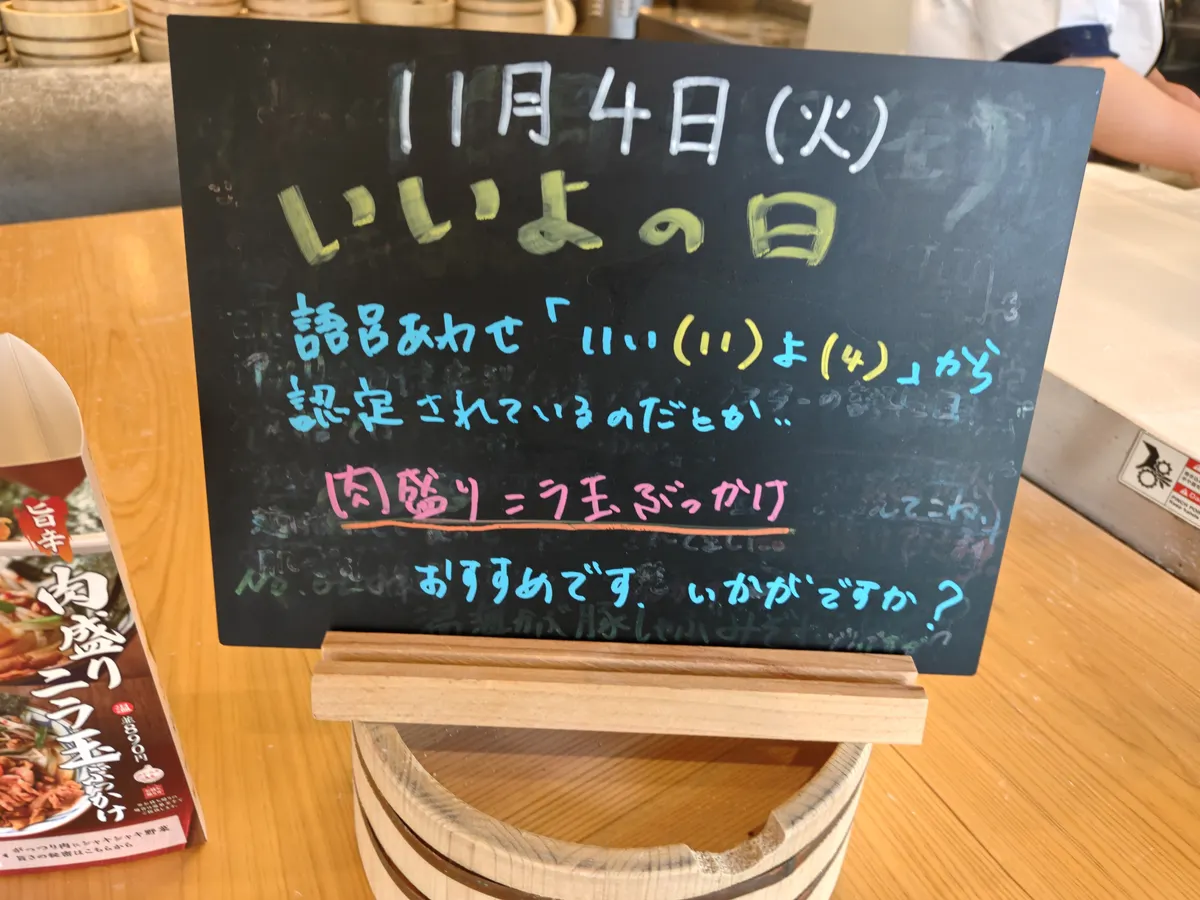 11月4日(火)
いいよの日
語呂あわせ「いい(11)よ(4)」から
認定されているのだとか..
肉盛りニラ玉ぶっかけ
おすすめです. いかがですか?
旨辛
肉盛り
ニラ玉ぶっかけ
温 並890円
がっつり肉にシャキシャキ野菜
旨さの秘密はこちらから